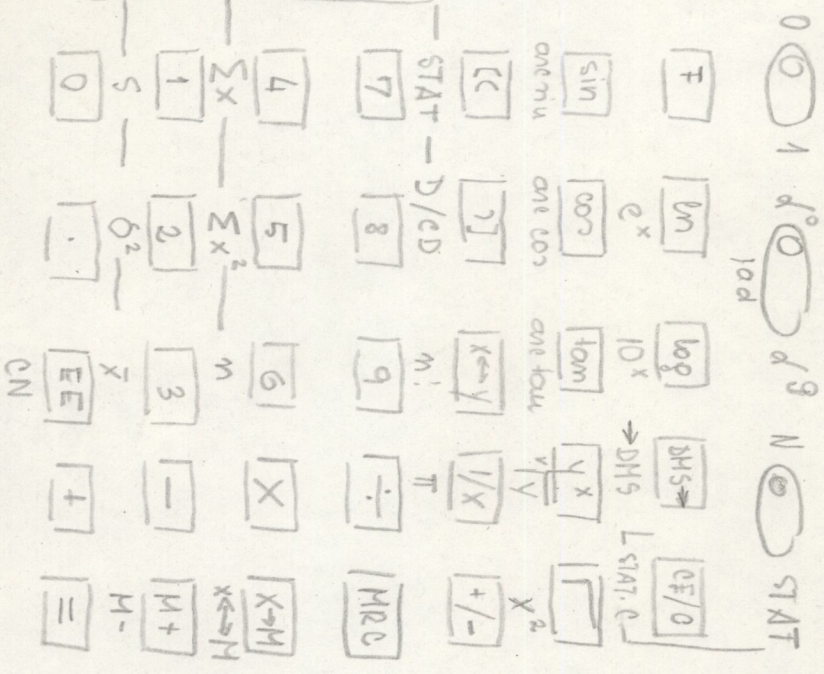 0 1 d° d g N STAT
rad
F ln log DMS→ CE/C
e^x 10^x →DMS STAT.C
sin cos tan y^x √
arc sin arc cos arc tan ^x√y x²
[( )] x↔y 1/x +/-
— STAT — D/CD n! π
7 8 9 ÷ MRC
4 5 6 X X→M
— Σx — Σx² — n x↔M
1 2 3 − M+
— S — δ² — x̄ M-
0 . EE + =
CN